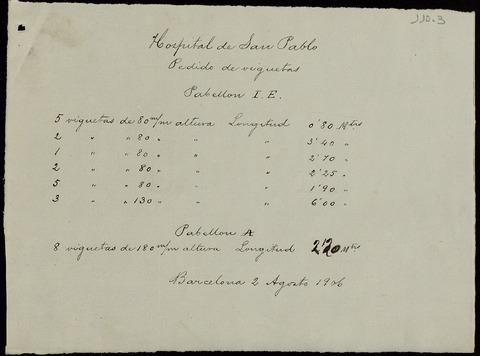 110-3
Hospital de San Pablo
Pedido de viguetas
Pabellon I. E.
5 viguetas de 80 m/m altura Longitud 0'80 Mtrs
2 " " 80 " " " 3'40 "
1 " " 80 " " " 2'70 "
2 " " 80 " " " 2'25 "
5 " " 80 " " " 1'90 "
3 " " 130 " " " 6'00 "
Pabellon A
8 viguetas de 180 m/m altura Longitud 2'20 Mtrs
Barcelona 2 Agosto 1906